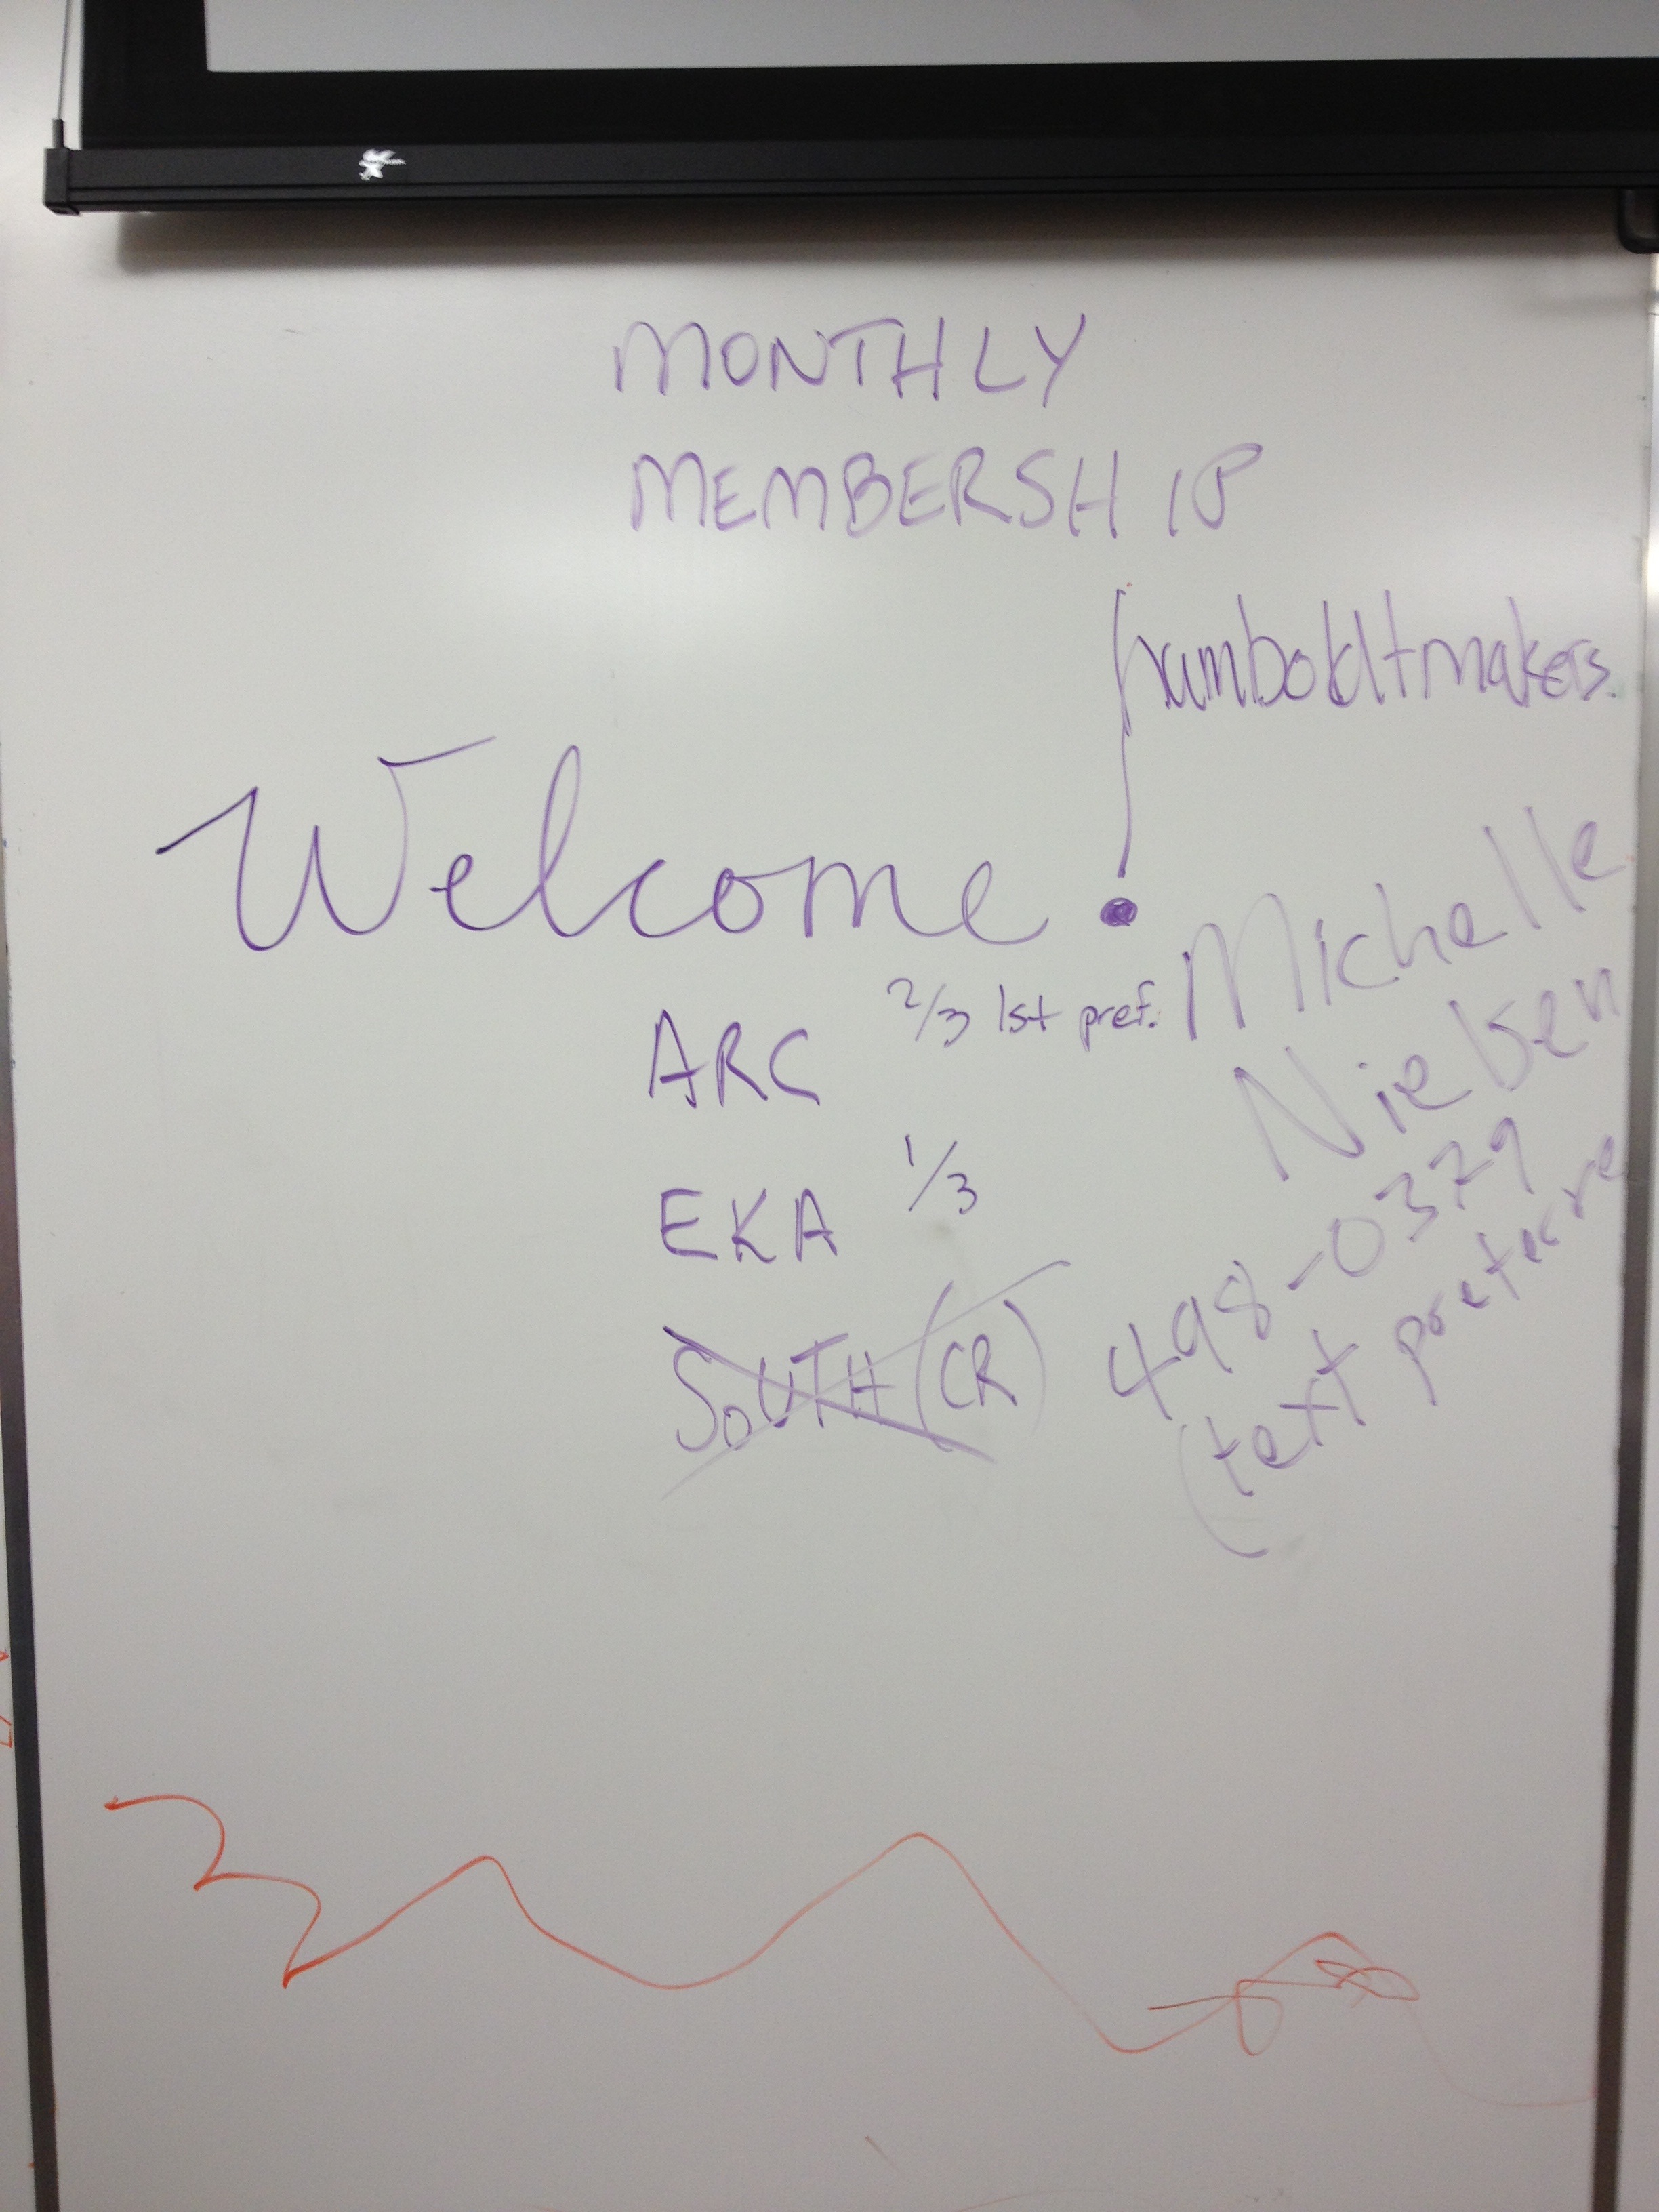 MONTHLY
MEMBERSHIP
humboldtmakers.
Welcome!
ARC 2/3 1st pref.
EKA 1/3
SOUTH (CR)
Michelle
Nielsen
498-0379
(text preferre